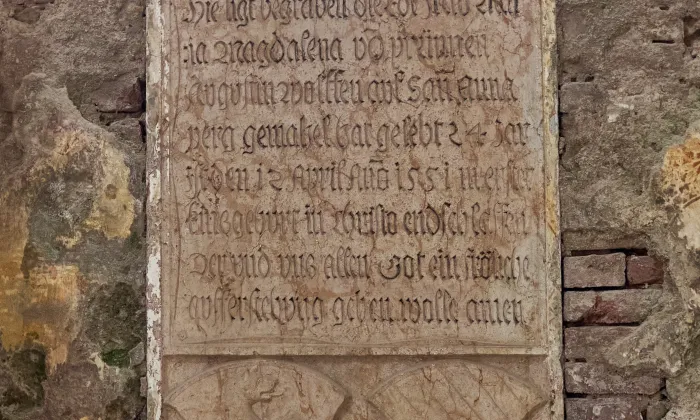 Hie ligt begraben die Edl Fraw Ma
ria Magdalena võ prũnnen
Augustin Wolffen auf San̄ Anna
perg gemahel hat gelebt 24 Jar
ist den 12 April Año 1551 in erster
kindgepurt in Christo endschlaffen
Der und uns allen Got ein fröliche
aufferstehung geben wolle amen